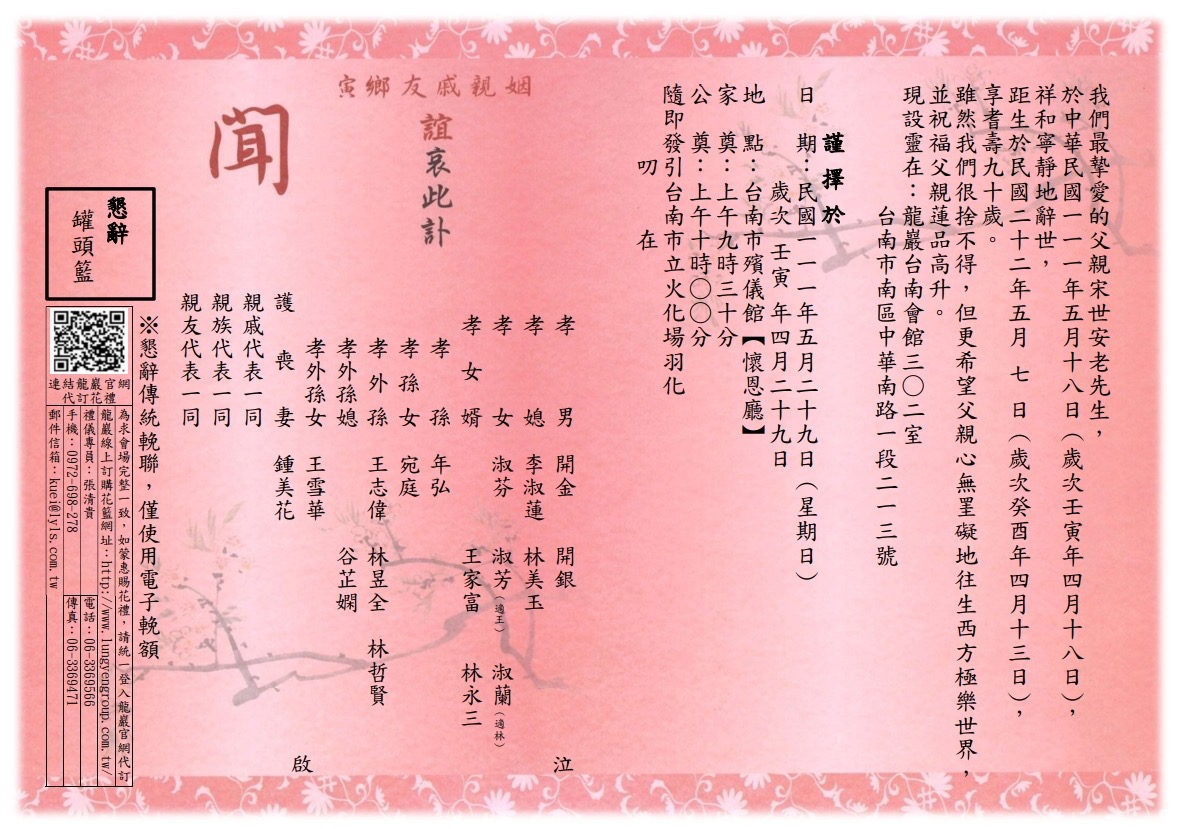 我們最摯愛的父親宋世安老先生，
於中華民國一一一年五月十八日（歲次壬寅年四月十八日），
祥和寧靜地辭世，
距生於民國二十二年五月 七 日（歲次癸酉年四月十三日），
享耆壽九十歲。
雖然我們很捨不得，但更希望父親心無罣礙地往生西方極樂世界，
並祝福父親蓮品高升。
現設靈在：龍巖台南會館三〇二室
台南市南區中華南路一段二一三號
謹擇於
日 期：民國一一一年五月二十九日（星期日）
歲次 壬寅 年四月二十九日
地 點：台南市殯儀館【懷恩廳】
家 奠：上午九時三十分
公 奠：上午十時〇〇分
隨即發引台南市立火化場羽化
叨 在
姻親戚友鄉寅
誼哀此訃
聞
孝 男 開金 開銀 泣
孝 媳 李淑蓮 林美玉
孝 女 淑芬 淑芳（適王） 淑蘭（適林）
孝女婿 王家富 林永三
孝 孫 年弘
孝孫女 宛庭
孝外孫 王志偉 林昱全 林哲賢
孝外孫媳 谷芷嫻
孝外孫女 王雪華
護喪妻 鍾美花 啟
親戚代表一同
親族代表一同
親友代表一同
※懇辭傳統輓聯，僅使用電子輓額
懇辭
罐頭籃
連結龍巖官網
代訂花禮
為求會場完整一致，如蒙惠賜花禮，請統一登入龍巖官網代訂
龍巖線上訂購花籃網址：http://www.lungyengroup.com.tw/
禮儀專員：張清貴
電話：06-3369566
手機：0972-698-278
傳真：06-3369471
郵件信箱：kuei@lyls.com.tw